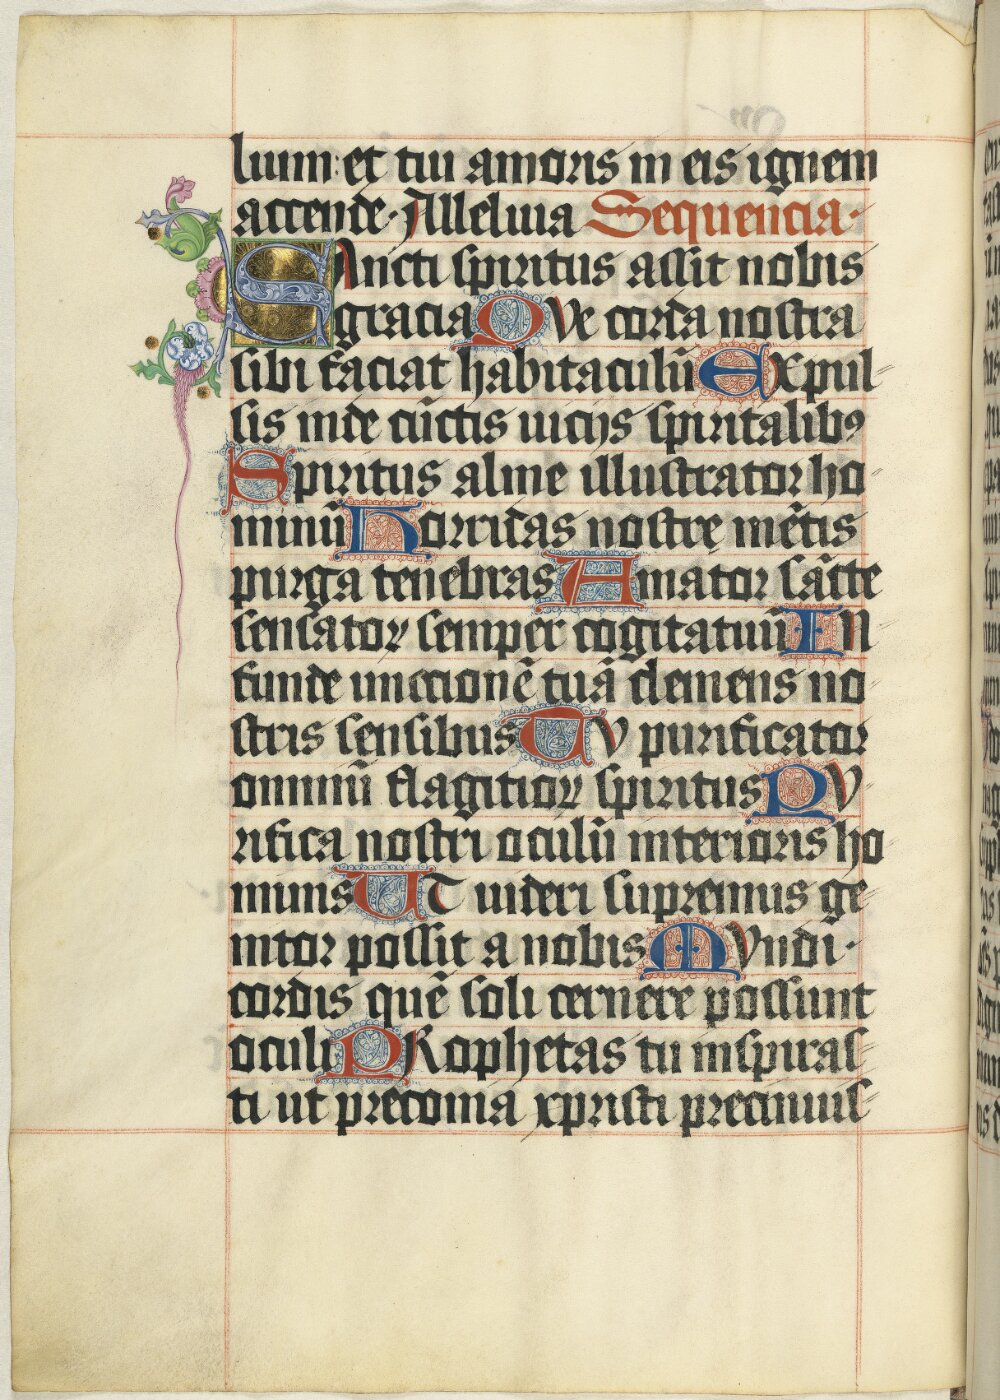 lium: et tui amoris in eis ignem
accende. Alleluia Sequencia.
Sancti spiritus assit nobis
gracia Qve corda nostra
sibi faciat habitaculū Expul
sis inde cūctis uicijs spiritalibꝰ
Spiritus alme illustrator ho
minū Horridas nostrę mētis
purga tenebras Amator sācte
sensatoꝝ semper cogitatuū In
funde unccionē tuā clemens no
stris sensibus Tv purificator
omniū flagitioꝝ spiritus Pv
rifica nostri oculū interioris ho
minis Ut uideri supremus ge
nitor possit a nobis Mvndi.
cordis quē soli cernere possunt
oculi PRophetas tu inspiras
ti ut preconia xpristi precinuis